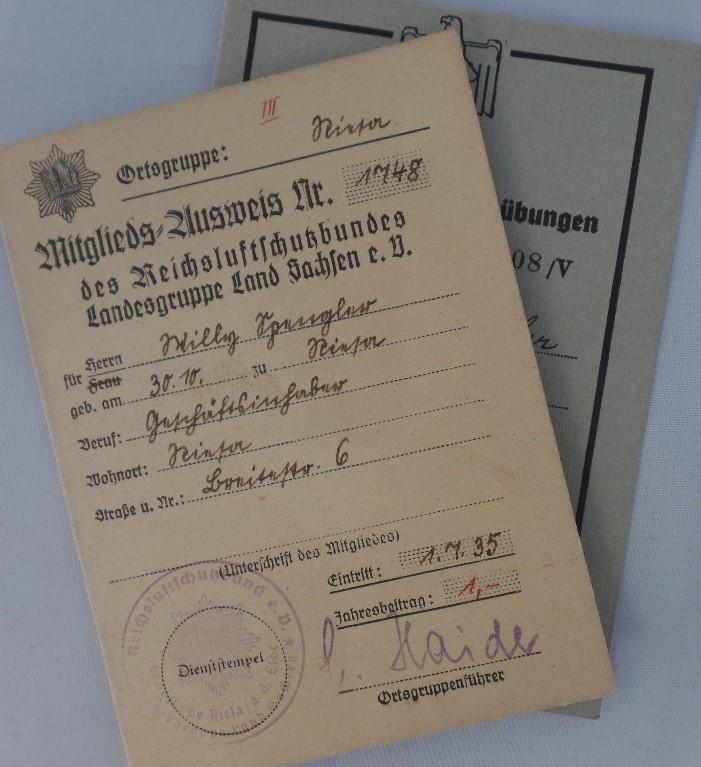 III
Ortsgruppe: Riesa
Mitglieds-Ausweis Nr. 1748
des Reichsluftschutzbundes
Landesgruppe Land Sachsen e. V.
für Herrn Frau Willy Spengler
geb. am 30. 10. zu Riesa
Beruf: Geschäftsinhaber
Wohnort: Riesa
Straße u. Nr.: Breitestr. 6
(Unterschrift des Mitgliedes)
Eintritt: 1.7.35
Jahresbeitrag: 1,-
Haide
Ortsgruppenführer
Reichsluftschutzbund e.V.
Riesa a. d. Elbe
Dienststempel
übungen
08/V